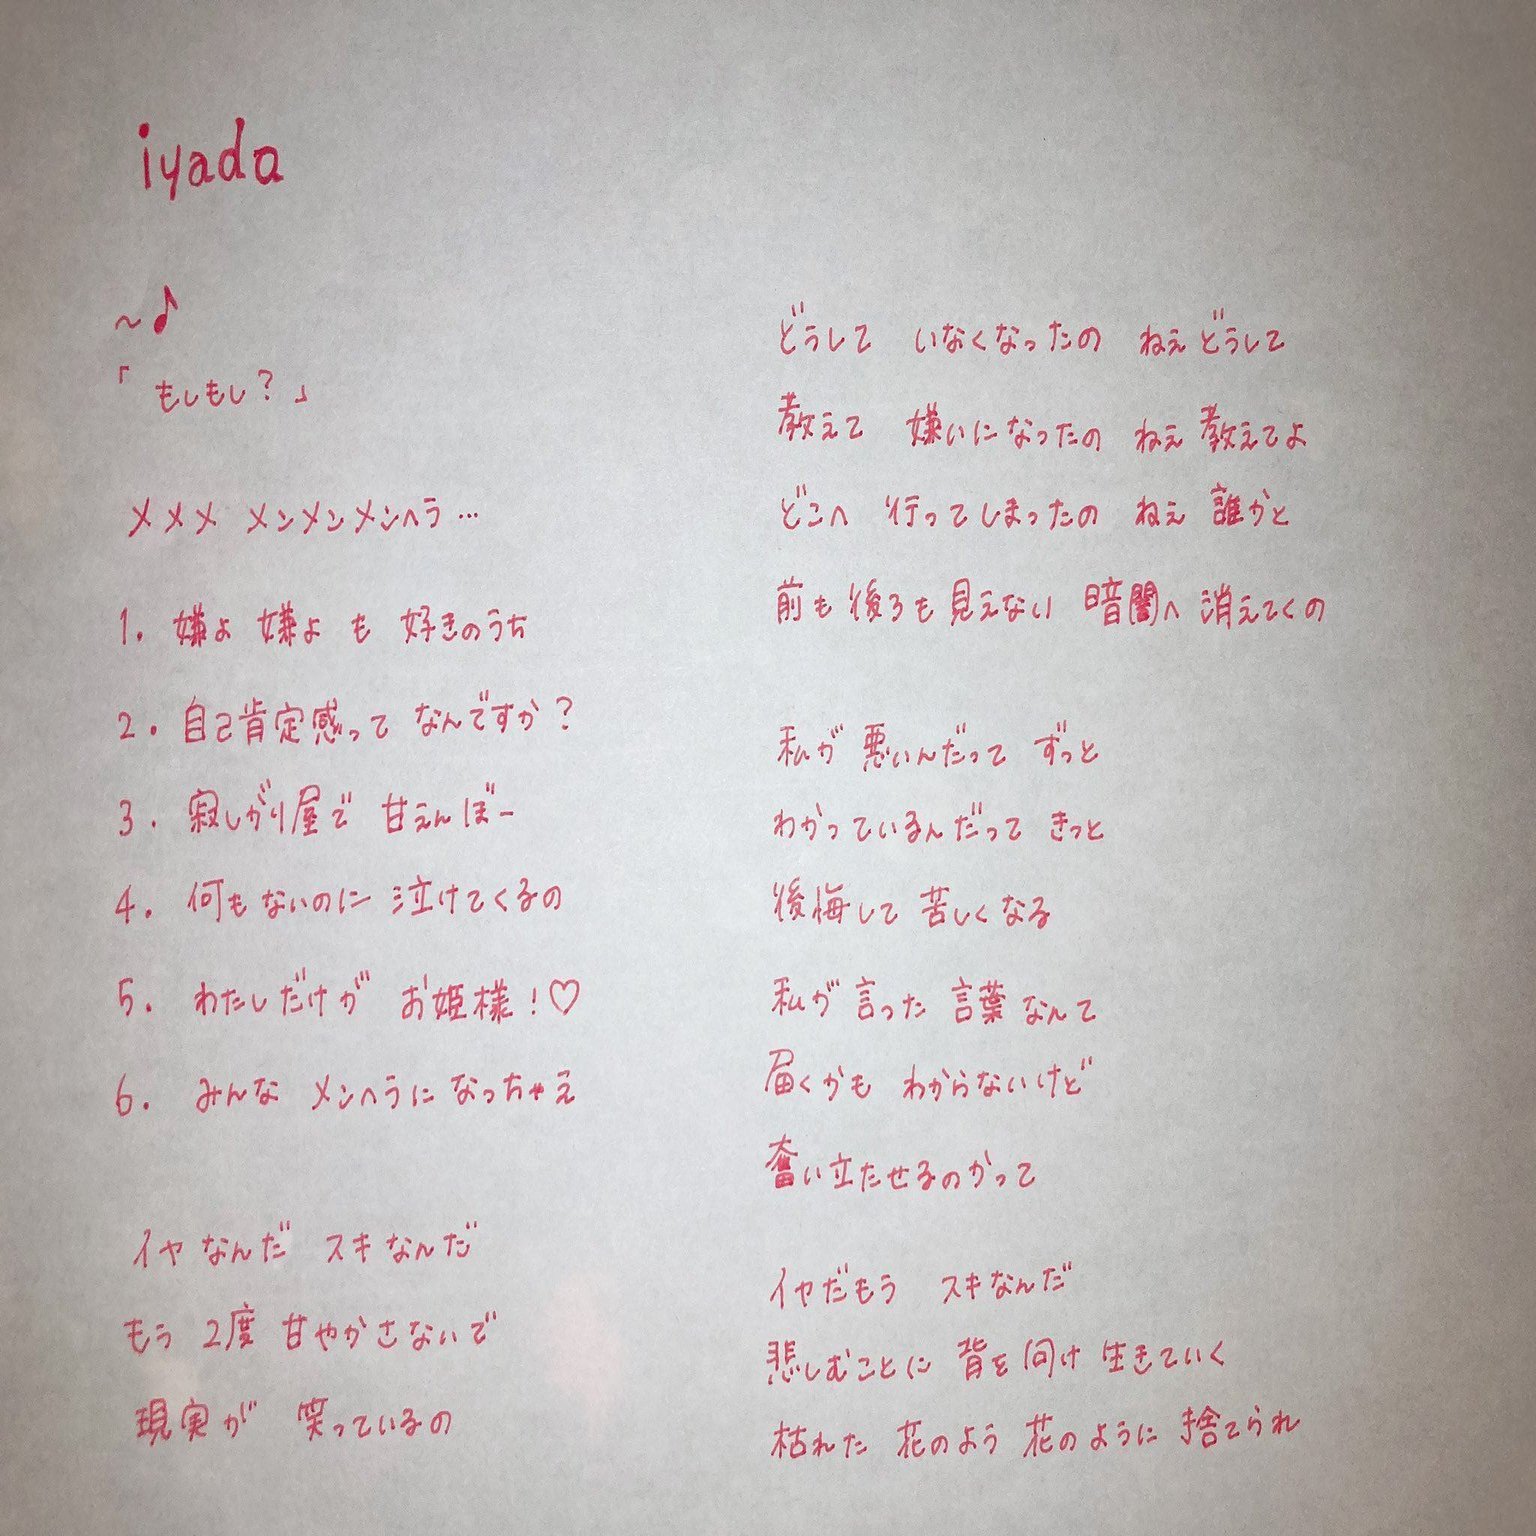 iyada
～♪
「もしもし？」
メメメ メンメンメンヘラ…
1. 嫌よ 嫌よ も 好きのうち
2. 自己肯定感って なんですか？
3. 寂しがり屋で 甘えんぼー
4. 何もないのに 泣けてくるの
5. わたしだけが お姫様！♡
6. みんな メンヘラに なっちゃえ
イヤなんだ スキなんだ
もう 2度 甘やかさないで
現実が 笑っているの
どうして いなくなったの ねえ どうして
教えて 嫌いになったの ねえ 教えてよ
どこへ 行ってしまったの ねえ 誰かと
前も 後ろも 見えない 暗闇へ 消えてくの
私が 悪いんだって ずっと
わかっているんだって きっと
後悔して 苦しくなる
私が 言った 言葉なんて
届くかも わからないけど
奮い立たせるのかって
イヤだもう スキなんだ
悲しむことに 背を 向け 生きていく
枯れた 花のよう 花のように 捨てられ